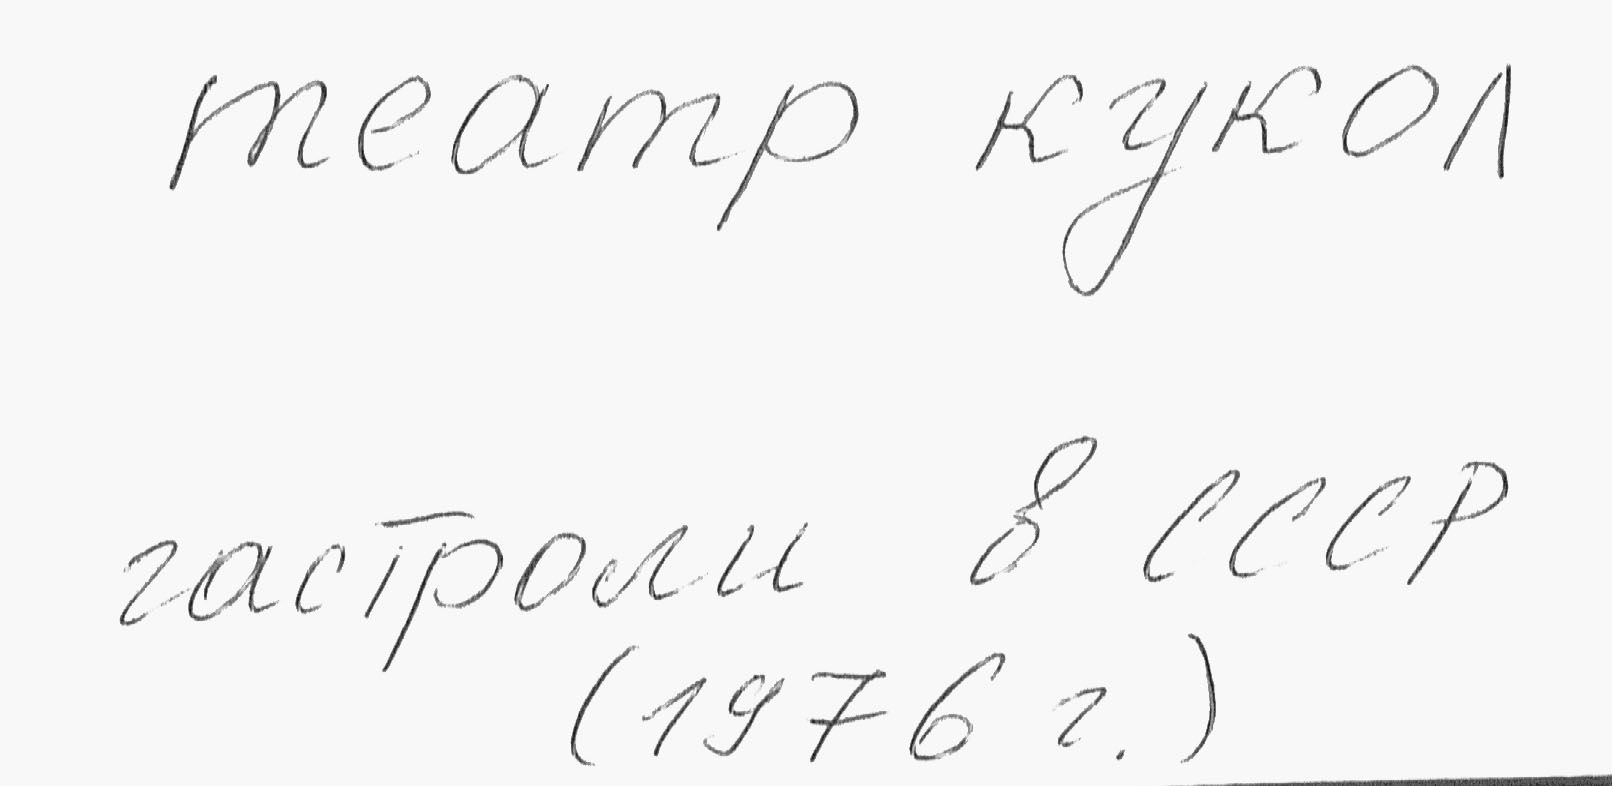 театр кукол
гастроли в СССР
(1976 г.)